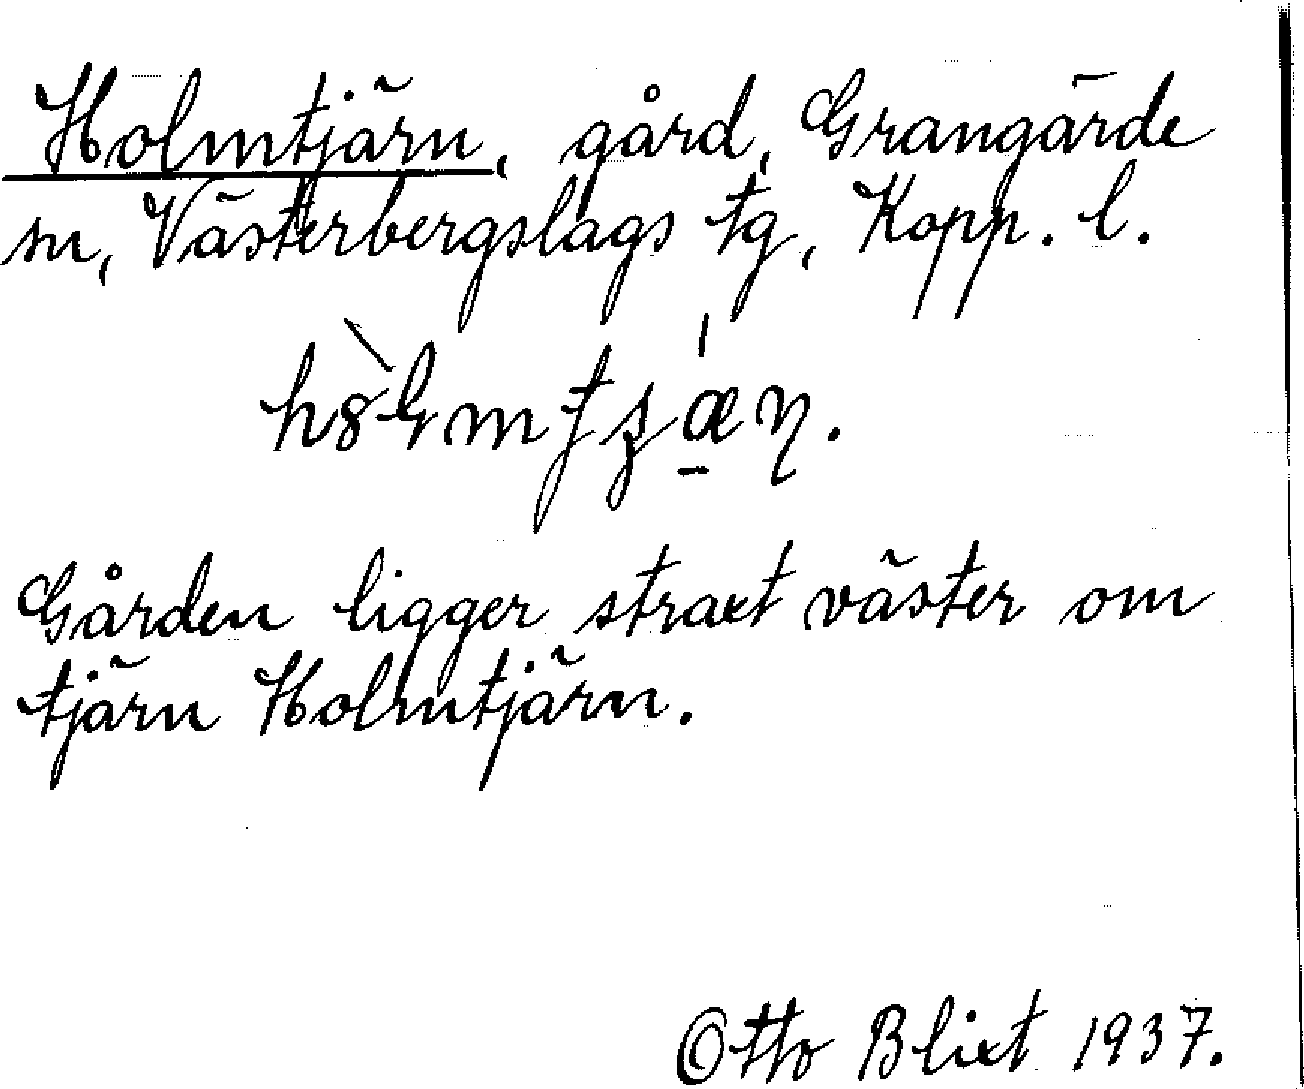 Holmtjärn, gård, Grangärde
sn, Västerbergslags tg, Kopp. l.
Gården ligger straxt väster om
tjärn Holmtjärn.
Otto Blixt 1937.